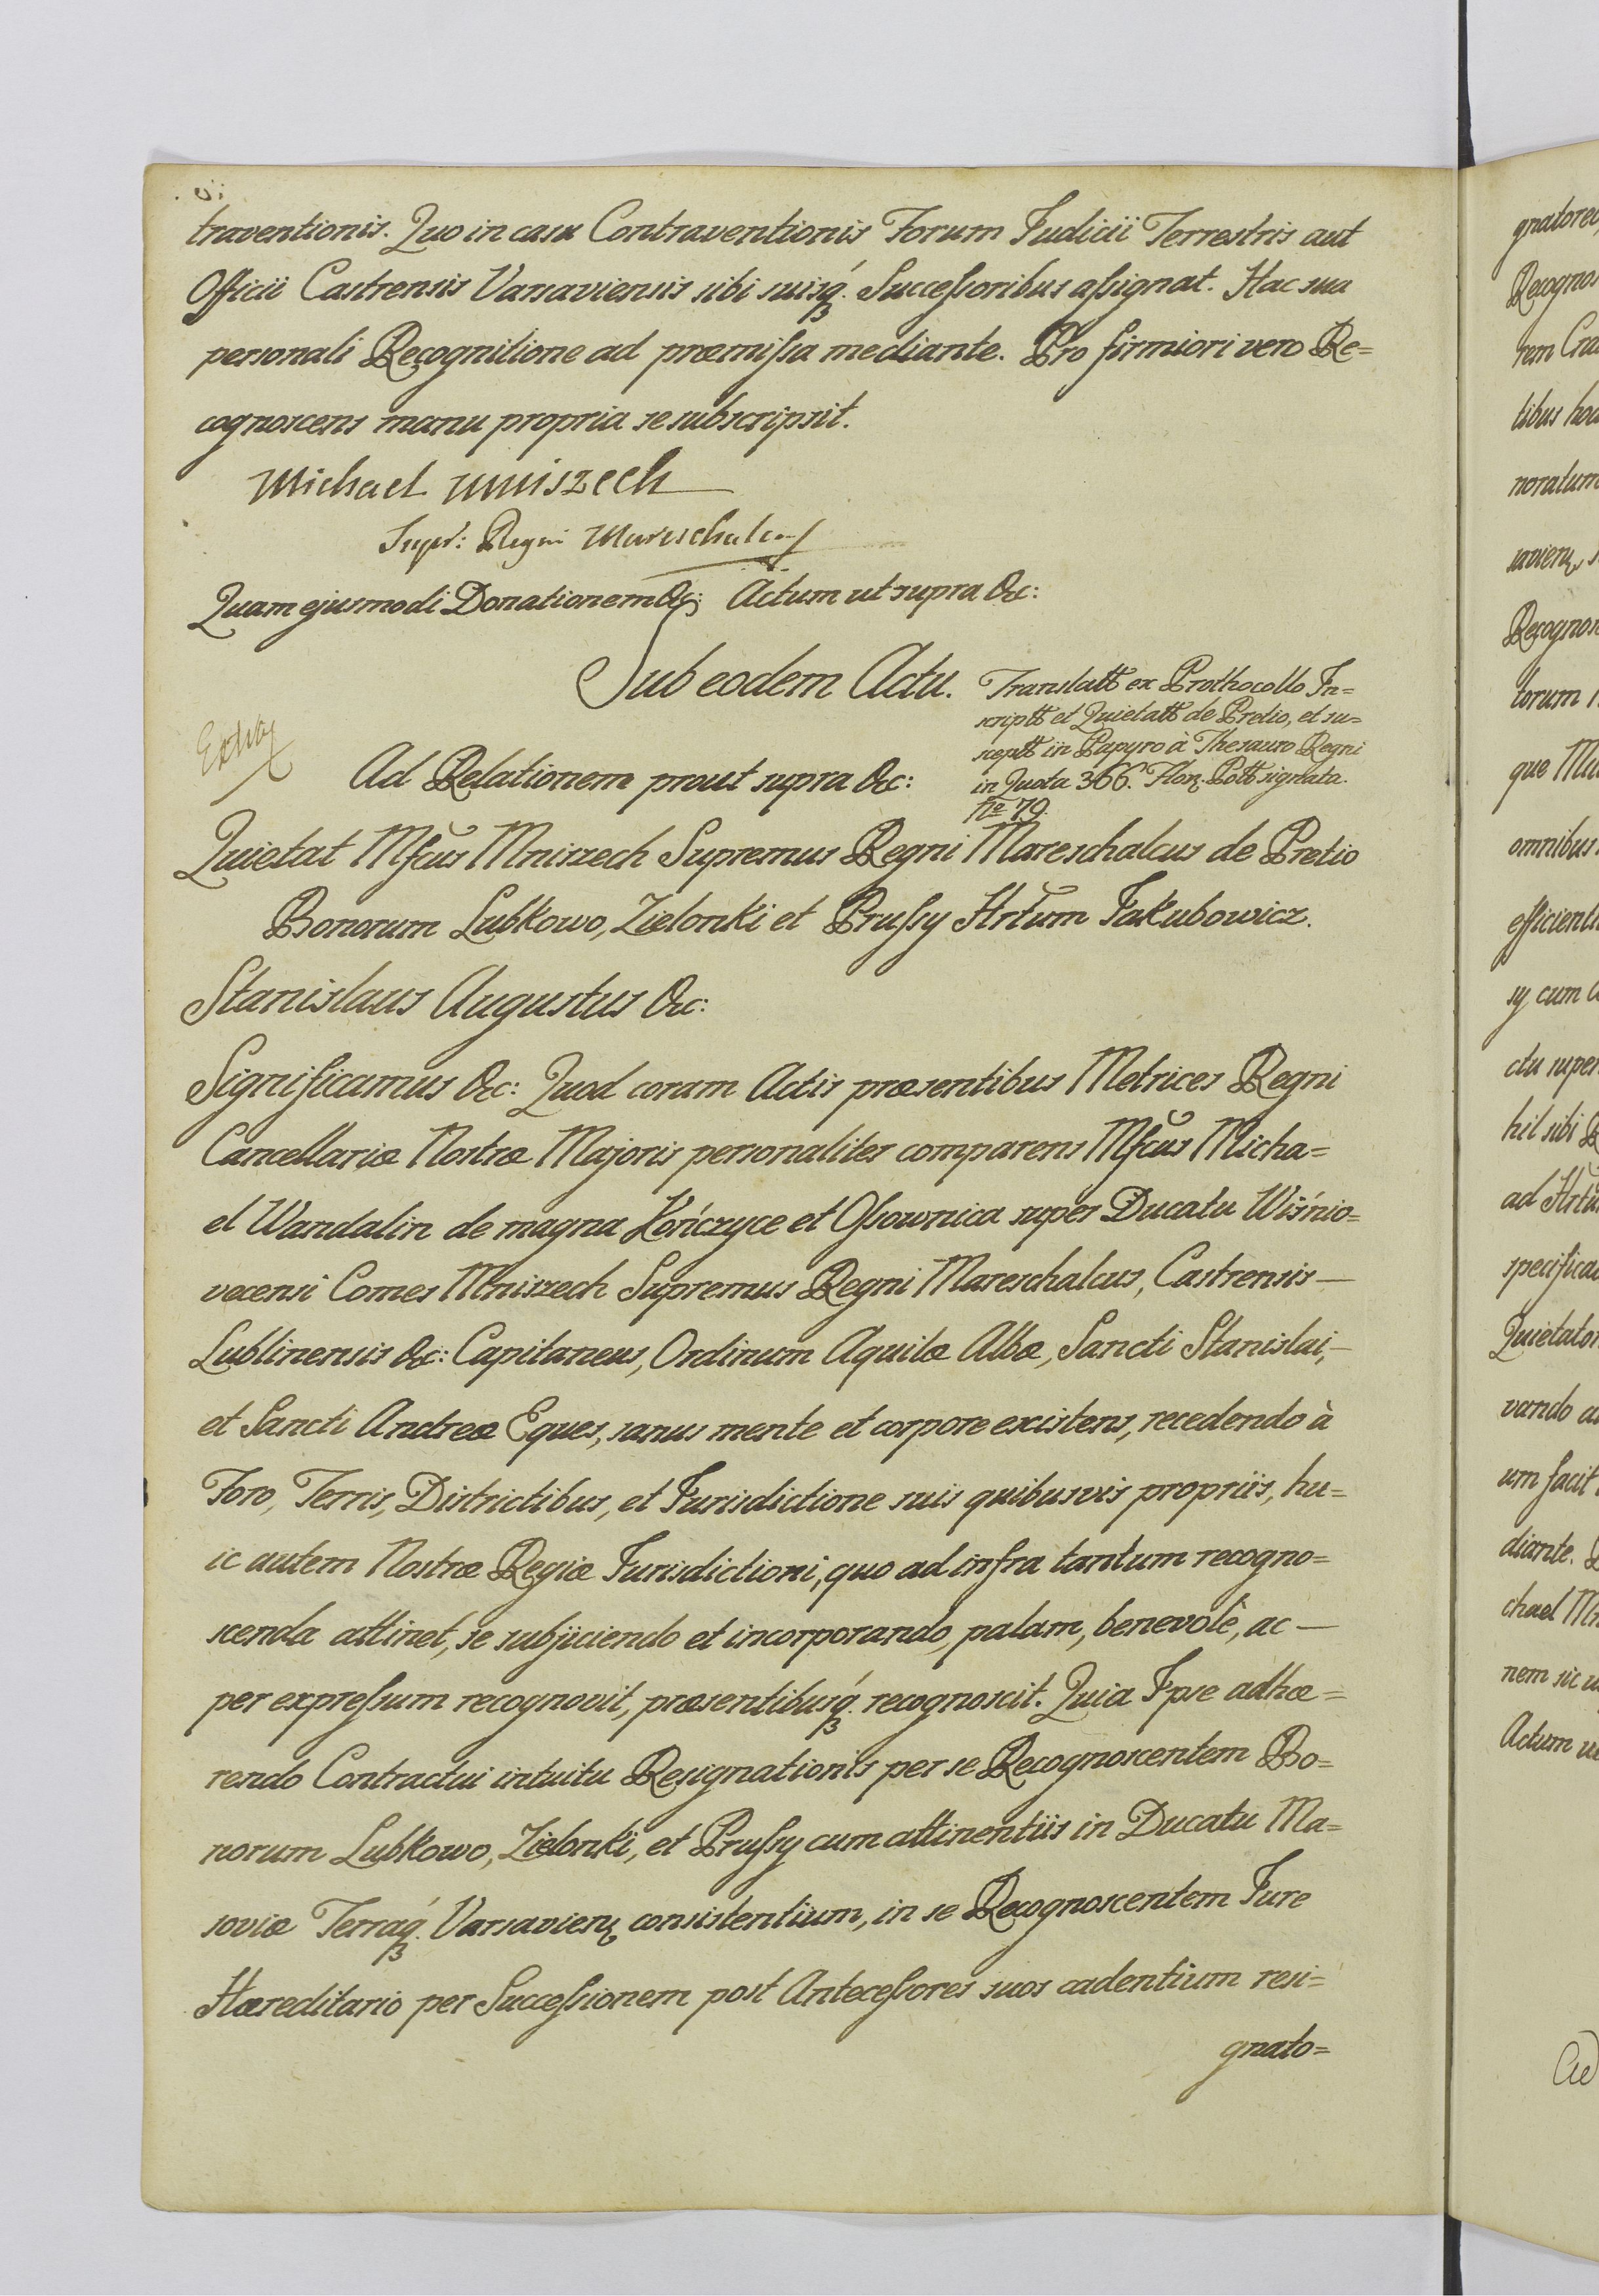 traventionis. Quo in casu Contraventionis Forum Judicii Terrestris aut
Officii Castrensis Varsaviensis sibi suisq́₃. Successoribus assignat. Hac sua
personali Recognitione ad præmissa mediante. Pro firmiori vero Re=
cognoscens manu propria se subscripsit.
Michael Mniszech
Supr: Regni Mareschalcus
Quam ejusmodi Donationem &c: Actum ut supra &c:
Sub eodem Actu.
Translatt ex Prothocollo In=
scriptt et Quietatt de Pretio, et su=
sceptt in Papyro à Thesauro Regni
in Quota 366. Flor. Pott signata.
No 79.
Extr
Ad Relationem prout supra &c:
Quietat Mfcus Mniszech Supremus Regni Mareschalcus de Pretio
Bonorum Lubkowo, Zielonki et Prussy Hrtum Jakubowicz.
Stanislaus Augustus &c:
Significamus &c: Quod coram Actis præsentibus Metrices Regni
Cancellariæ Nostræ Majoris personaliter comparens Mfcus Micha=
el Wandalin de magna Kończyce et Ossownica super Ducatu Wiśnio=
vecensi Comes Mniszech Supremus Regni Mareschalcus, Castrensis —
Lublinensis &c: Capitaneus, Ordinum Aquilæ Albæ, Sancti Stanislai, —
et Sancti Andreæ Eques, sanus mente et corpore existens, recedendo à
Foro, Terris, Districtibus, et Jurisdictione suis quibusvis propriis, hu=
ic autem Nostræ Regiæ Jurisdictioni, quo ad infra tantum recogno=
scenda attinet, se subjiciendo et incorporando, palam, benevolè, ac —
per expressum recognovit, præsentibusq́₃. recognoscit. Quia Ipse adhæ=
rendo Contractui intuitu Resignationis per se Recognoscentem Bo=
norum Lubkowo, Zielonki, et Prussy cum attinentiis in Ducatu Ma=
soviæ Terraq́₃. Varsavien consistentium, in se Recognoscentem Jure
Hæreditario per Successionem post Antecessores suos cadentium resi=
gnato=